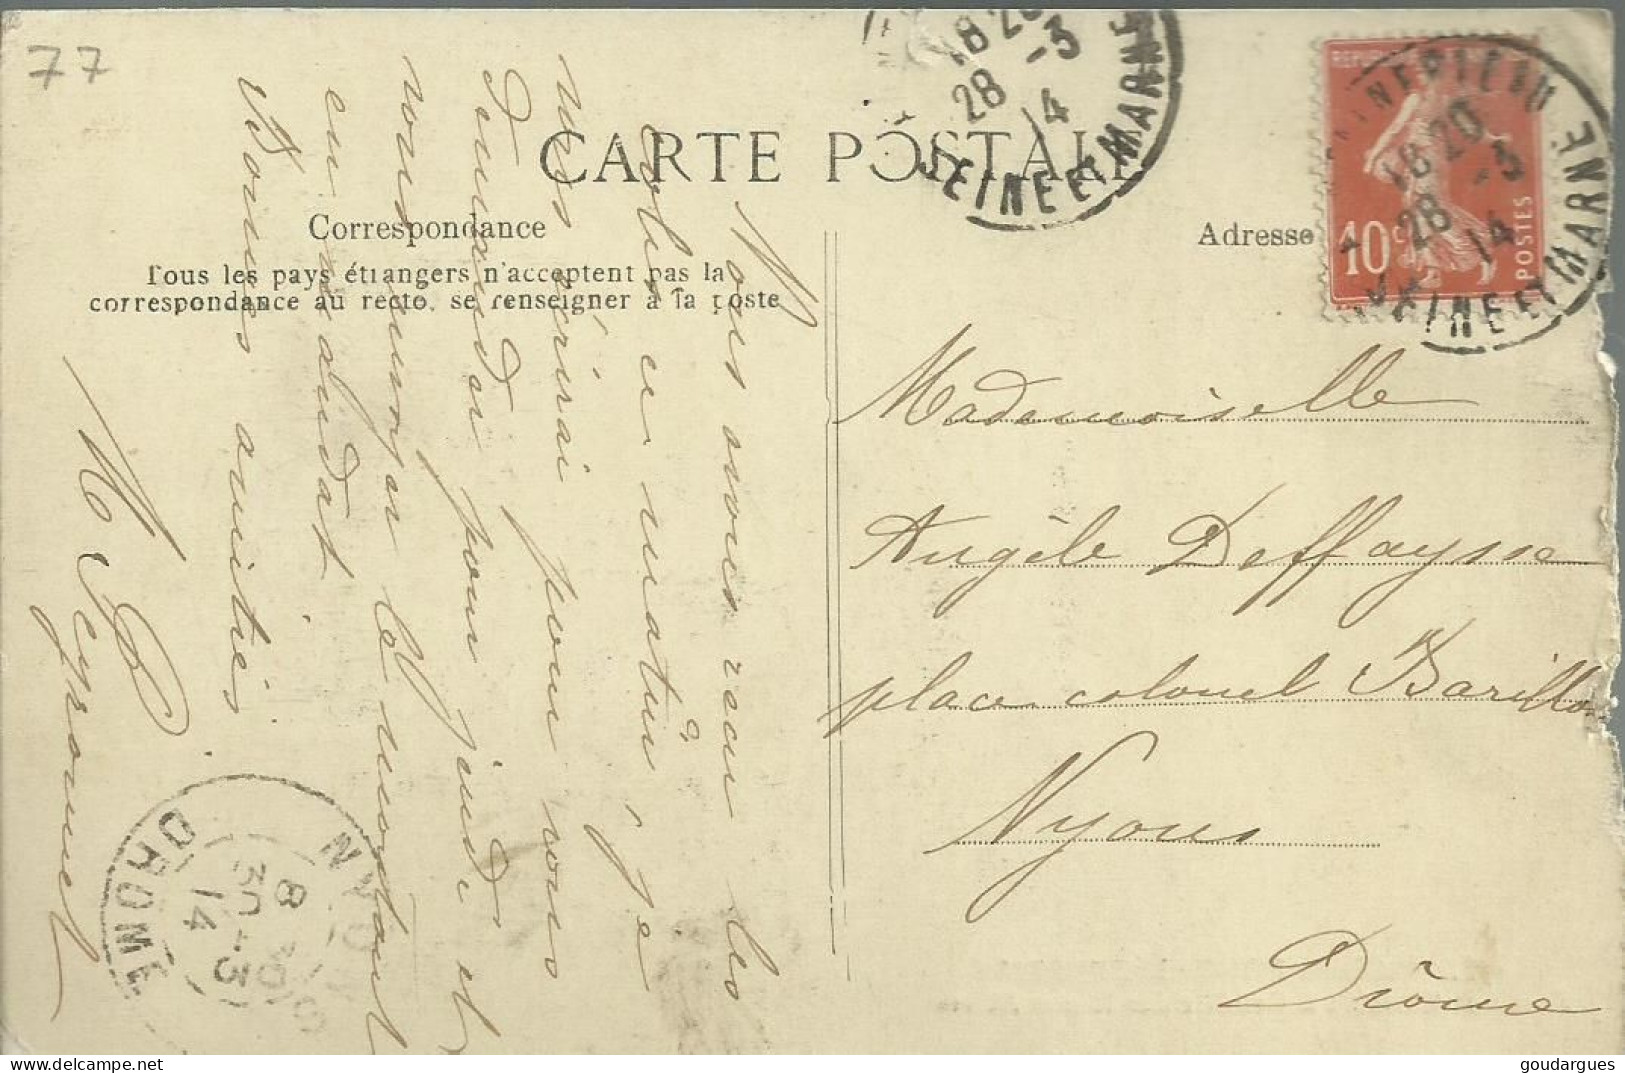 77
CARTE POSTALE
Correspondance
Tous les pays étrangers n'acceptent pas la
correspondance au recto, se renseigner à la poste
Adresse
REPUBLIQUE
10c
POSTES
18 20
28 -3
14
SEINE ET MARNE
18 20
28 -3
14
SEINE ET MARNE
Nous avons reçu les
colis ce matin je
vous écrirai pour vous
demander pour jeudi et
vous envoyer le montant
en mandat
Bonnes amitiés
M Peyronnet
Mademoiselle
Angèle Deffaysse
place colonel Barillon
Nyons
Drôme
NYONS
DROME
8
30 -3
14
goudargues